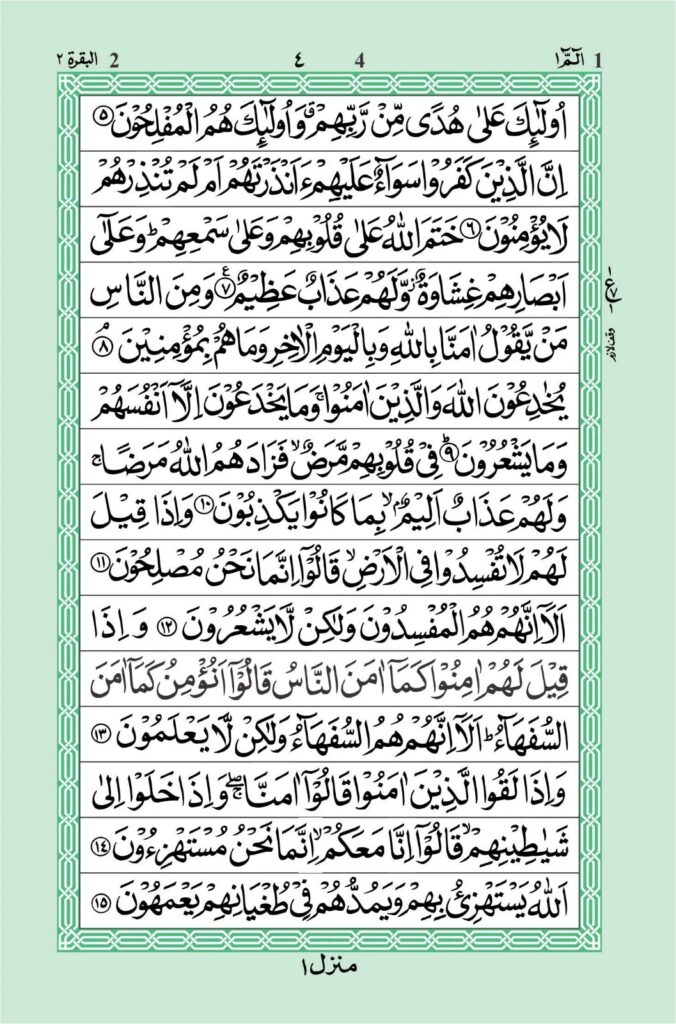 1 الٓمّٓ ١ 4 ٤ 2 البقرة ٢
اُولٰٓئِكَ عَلٰى هُدًى مِّنْ رَّبِّهِمْ ۗ وَاُولٰٓئِكَ هُمُ الْمُفْلِحُوْنَ ۝٥
اِنَّ الَّذِيْنَ كَفَرُوْا سَوَآءٌ عَلَيْهِمْ ءَاَنْذَرْتَهُمْ اَمْ لَمْ تُنْذِرْهُمْ
لَا يُؤْمِنُوْنَ ۝٦ خَتَمَ اللّٰهُ عَلٰى قُلُوْبِهِمْ وَعَلٰى سَمْعِهِمْ ؕ وَعَلٰٓى
اَبْصَارِهِمْ غِشَاوَةٌ ؗ وَّلَهُمْ عَذَابٌ عَظِيْمٌ ۝٧ وَمِنَ النَّاسِ
ع ٧
وقف لازم
مَنْ يَّقُوْلُ اٰمَنَّا بِاللّٰهِ وَبِالْيَوْمِ الْاٰخِرِ وَمَا هُمْ بِمُؤْمِنِيْنَ ۝٨
يُخٰدِعُوْنَ اللّٰهَ وَالَّذِيْنَ اٰمَنُوْا ۚ وَمَا يَخْدَعُوْنَ اِلَّاۤ اَنْفُسَهُمْ
وَمَا يَشْعُرُوْنَ ۝٩ فِيْ قُلُوْبِهِمْ مَّرَضٌ ۙ فَزَادَهُمُ اللّٰهُ مَرَضًا ۚ
وَلَهُمْ عَذَابٌ اَلِيْمٌ ۙ بِمَا كَانُوْا يَكْذِبُوْنَ ۝١٠ وَاِذَا قِيْلَ
لَهُمْ لَا تُفْسِدُوْا فِي الْاَرْضِ ۙ قَالُوْۤا اِنَّمَا نَحْنُ مُصْلِحُوْنَ ۝١١
اَلَاۤ اِنَّهُمْ هُمُ الْمُفْسِدُوْنَ وَلٰكِنْ لَّا يَشْعُرُوْنَ ۝١٢ وَاِذَا
قِيْلَ لَهُمْ اٰمِنُوْا كَمَاۤ اٰمَنَ النَّاسُ قَالُوْۤا اَنُؤْمِنُ كَمَاۤ اٰمَنَ
السُّفَهَآءُ ؕ اَلَاۤ اِنَّهُمْ هُمُ السُّفَهَآءُ وَلٰكِنْ لَّا يَعْلَمُوْنَ ۝١٣
وَاِذَا لَقُوا الَّذِيْنَ اٰمَنُوْا قَالُوْۤا اٰمَنَّا ۖۚ وَاِذَا خَلَوْا اِلٰى
شَيٰطِيْنِهِمْ ۙ قَالُوْۤا اِنَّا مَعَكُمْ ۙ اِنَّمَا نَحْنُ مُسْتَهْزِءُوْنَ ۝١٤
اَللّٰهُ يَسْتَهْزِئُ بِهِمْ وَيَمُدُّهُمْ فِيْ طُغْيَانِهِمْ يَعْمَهُوْنَ ۝١٥
منزل ١